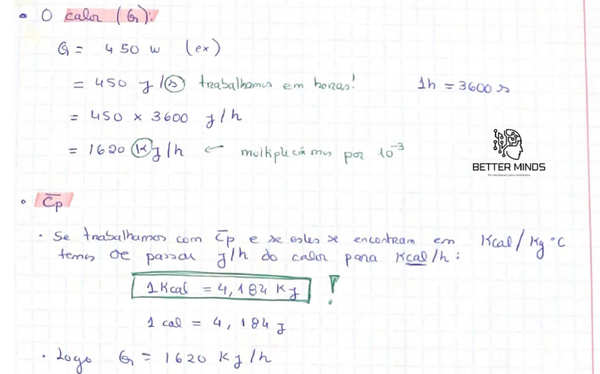 • O calor (Q):
Q = 450 W (ex)
= 450 J/s trabalhamos em horas! 1h = 3600 s
= 450 × 3600 J/h
= 1620 KJ/h ← multiplicámos por 10⁻³
BETTER MINDS
• C̅p
• Se trabalhamos com C̅p e se estes se encontram em Kcal/Kg °C
temos de passar J/h do calor para Kcal/h:
1 Kcal = 4,184 KJ !
1 cal = 4,184 J
• Logo Q = 1620 KJ/h